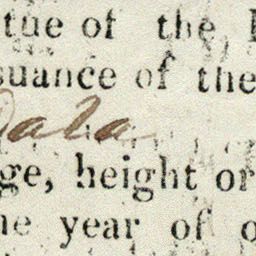 tue of the
suance of the
Data
ge, height or
ne year of o